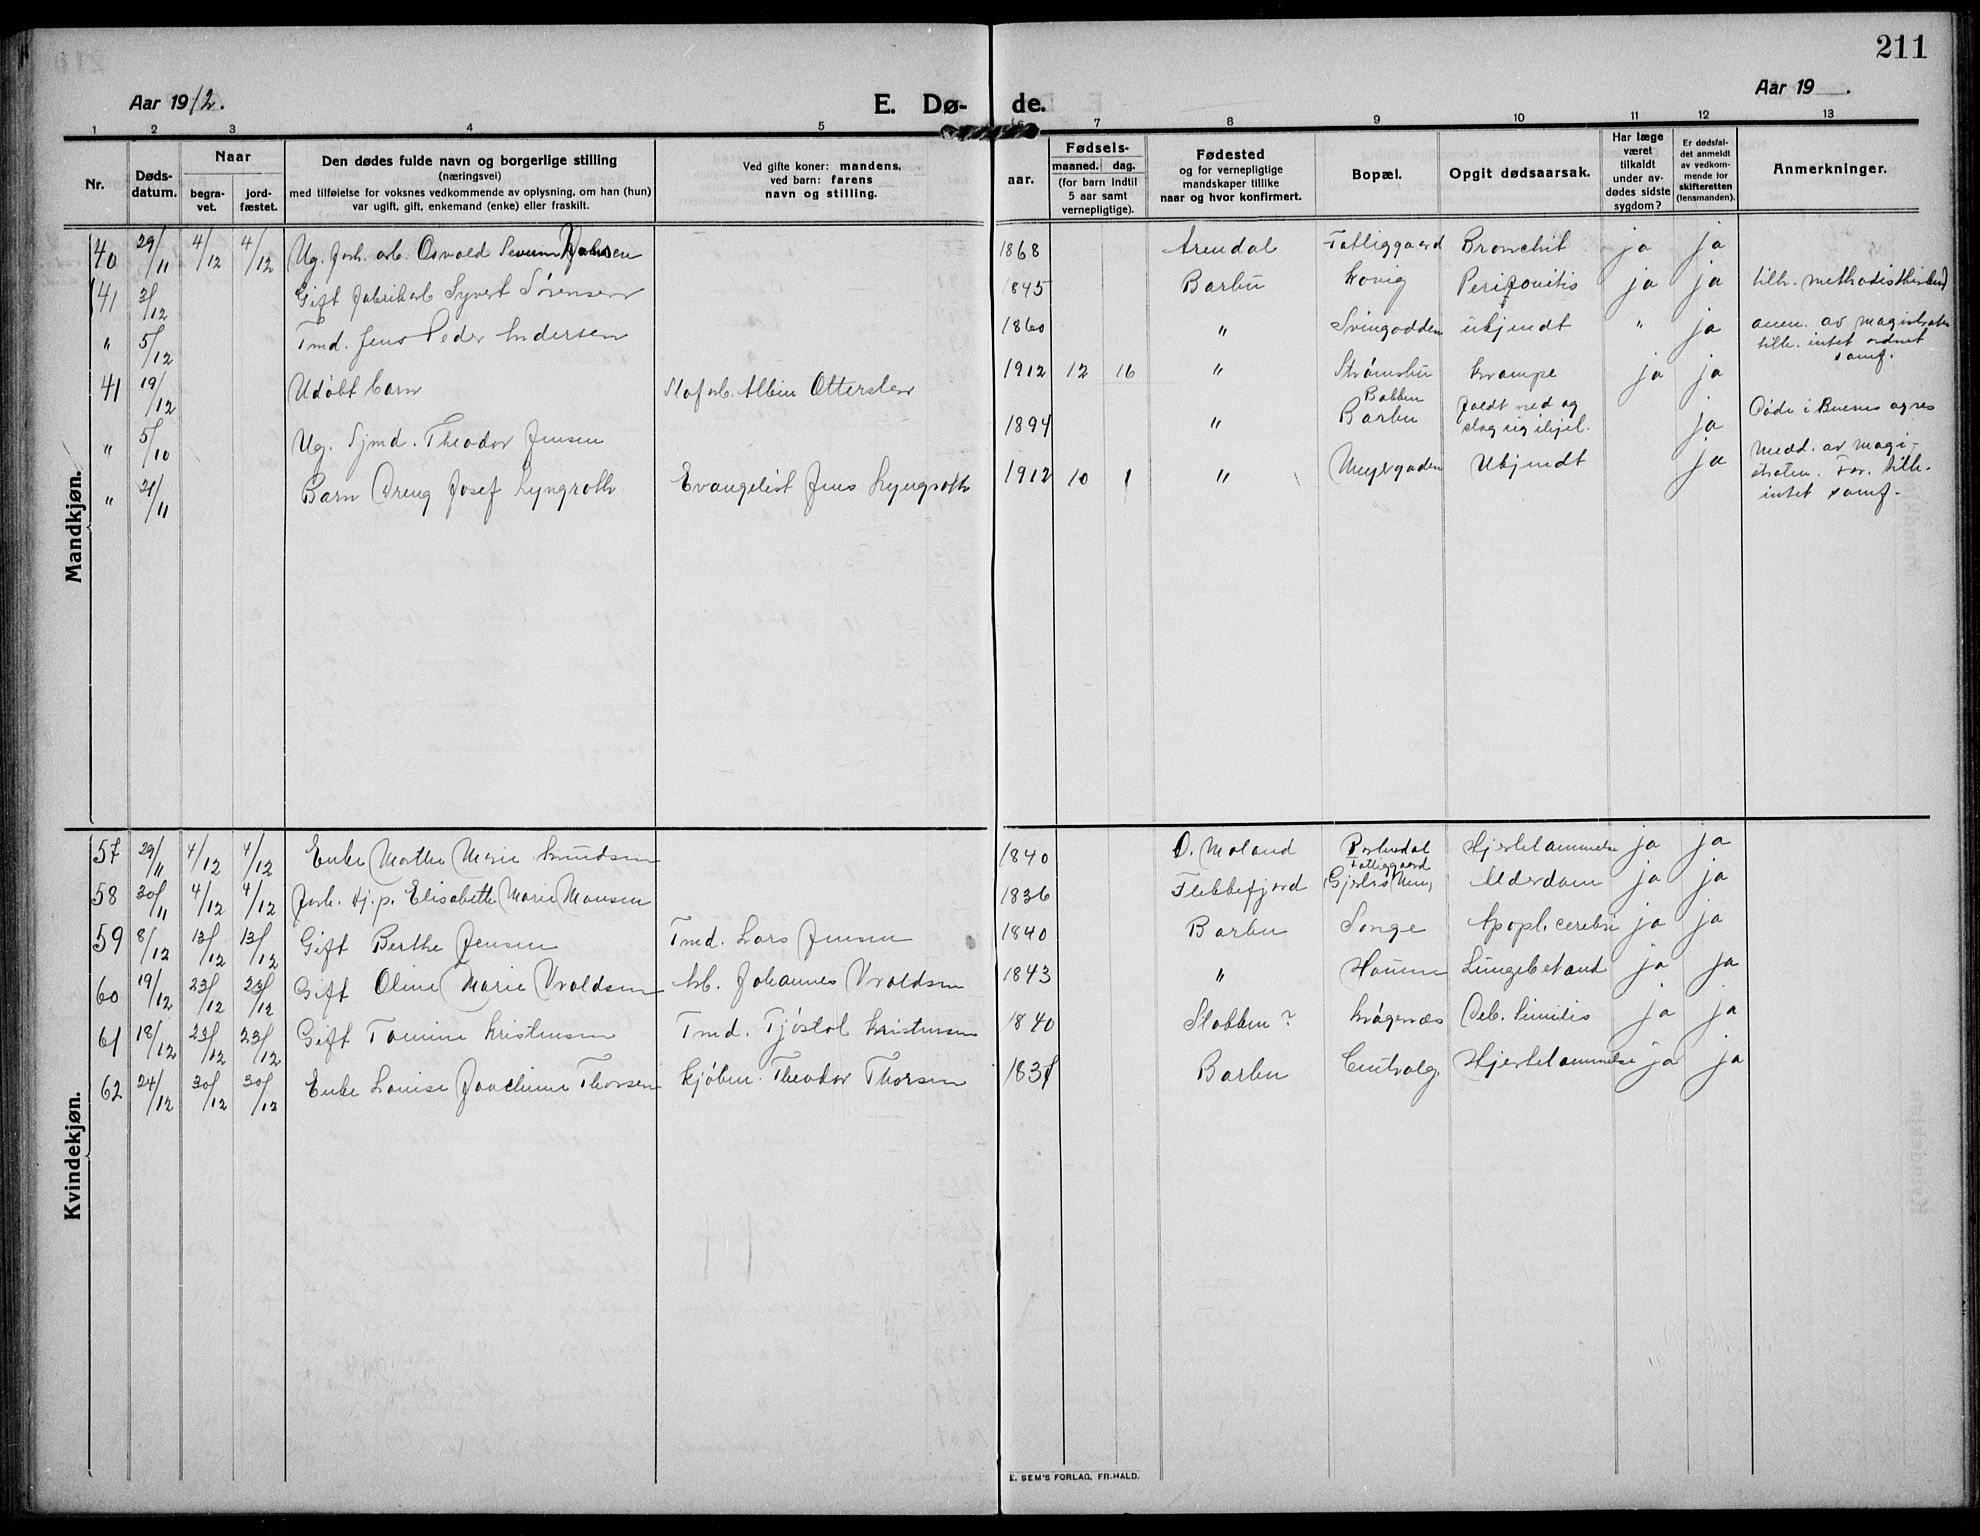 211
Aar 1912. E. Dø- de. Aar 19 .
1 2 3 4 5 6 7 8 9 10 11 12 13
Nr.
Døds-
datum.
Naar
begra-
vet.
jord-
fæstet.
Den dødes fulde navn og borgerlige stilling
(næringsvei)
med tilføielse for voksnes vedkommende av oplysning, om han (hun)
var ugift, gift, enkemand (enke) eller fraskilt.
Ved gifte koner: mandens,
ved barn: farens
navn og stilling.
Fødsels-
aar.
maaned. dag.
(for barn indtil
5 aar samt
vernepligtige).
Fødested
og for vernepligtige
mandskaper tillike
naar og hvor konfirmert.
Bopæl.
Opgit dødsaarsak.
Har læge
været
tilkaldt
under av-
dødes sidste
sygdom?
Er dødsfal-
det anmeldt
av vedkom-
mende for
skifteretten
(lensmanden).
Anmerkninger.
Mandkjøn.
40 29/11 4/12 4/12 Ug. forh. arb. Osvald Severin 1868 Arendal Fattiggaard Bronchit ja ja
41 3/12 Gift fabrikarb Syvert Sørensen 1845 Barbu Kovig ja ja tilh. methodistkirken
" 5/12 Tmd. Jens Peder Andersen 1860 " Svingodden ukjendt " ja anm. av magistraten
tilh. intet ordnet
samf.
41 19/12 Udøbt barn Albin Ottersten 1912 12 16 " Strømsbu krampe ja ja
" 5/10 Ug. Sjmd. Theodor Jensen 1894 " Barbu faldt ned og
slog sig ihjel. ja Døde i Buenos agres
" 21/11 Barn Dreng Josef Lyngroth Evangelist Jens Lyngroth 1912 10 1 " Ukjendt ja Medd. av magi-
straten. For. tilh.
intet samf.
Kvindekjøn.
57 29/11 4/12 4/12 Enke Marthe Marie Knudsen 1840 Ø. Moland Hjertelammelse ja ja
58 30/11 4/12 4/12 forh. Hj. p. Elisabeth Marie Monsen 1836 Flekkefjord Fattiggaard Alderdom ja ja
59 8/12 13/12 13/12 Gift Berthe Jensen Tmd. Lars Jensen 1840 Barbu Songe Apopl. cerebri ja ja
60 19/12 23/12 23/12 Gift Oline Marie Vraldsen Arb. Johannes Vraldsen 1843 " Lungebetænd ja ja
61 18/12 23/12 23/12 Gift Tomine Kristensen Tmd. Tjøstol Kristensen 1840 Stokken? Krøgenæs Deb. Senilis ja ja
62 24/12 30/12 30/12 Enke Louise Joachime Thorsen Kjøbm. Theodor Thorsen Barbu Centralg. Hjertelammelse ja ja
E. SEM'S FORLAG, FR.HALD.